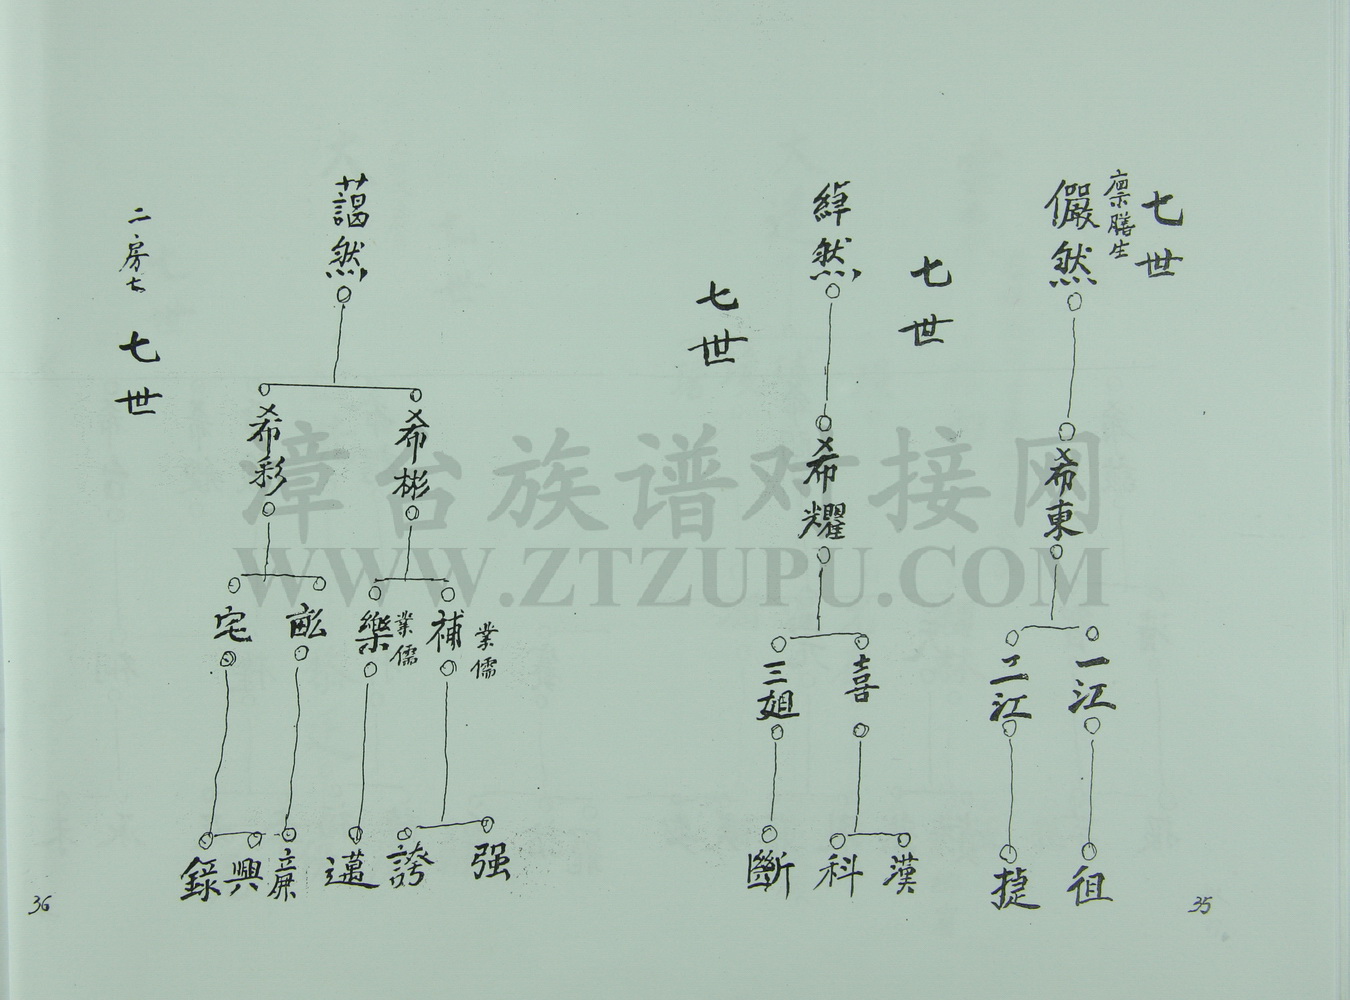 七世
廩膳生
儼然
希東
一江
二江
徂
捷
35
七世
綽然
希耀
喜
三姐
漢
科
斷
七世
藹然
希彬
希彩
補
業儒
樂
業儒
畝
宅
强
誇
邁
興
錄
二房七
七世
36
漳台族谱对接网
WWW.ZTZUPU.COM